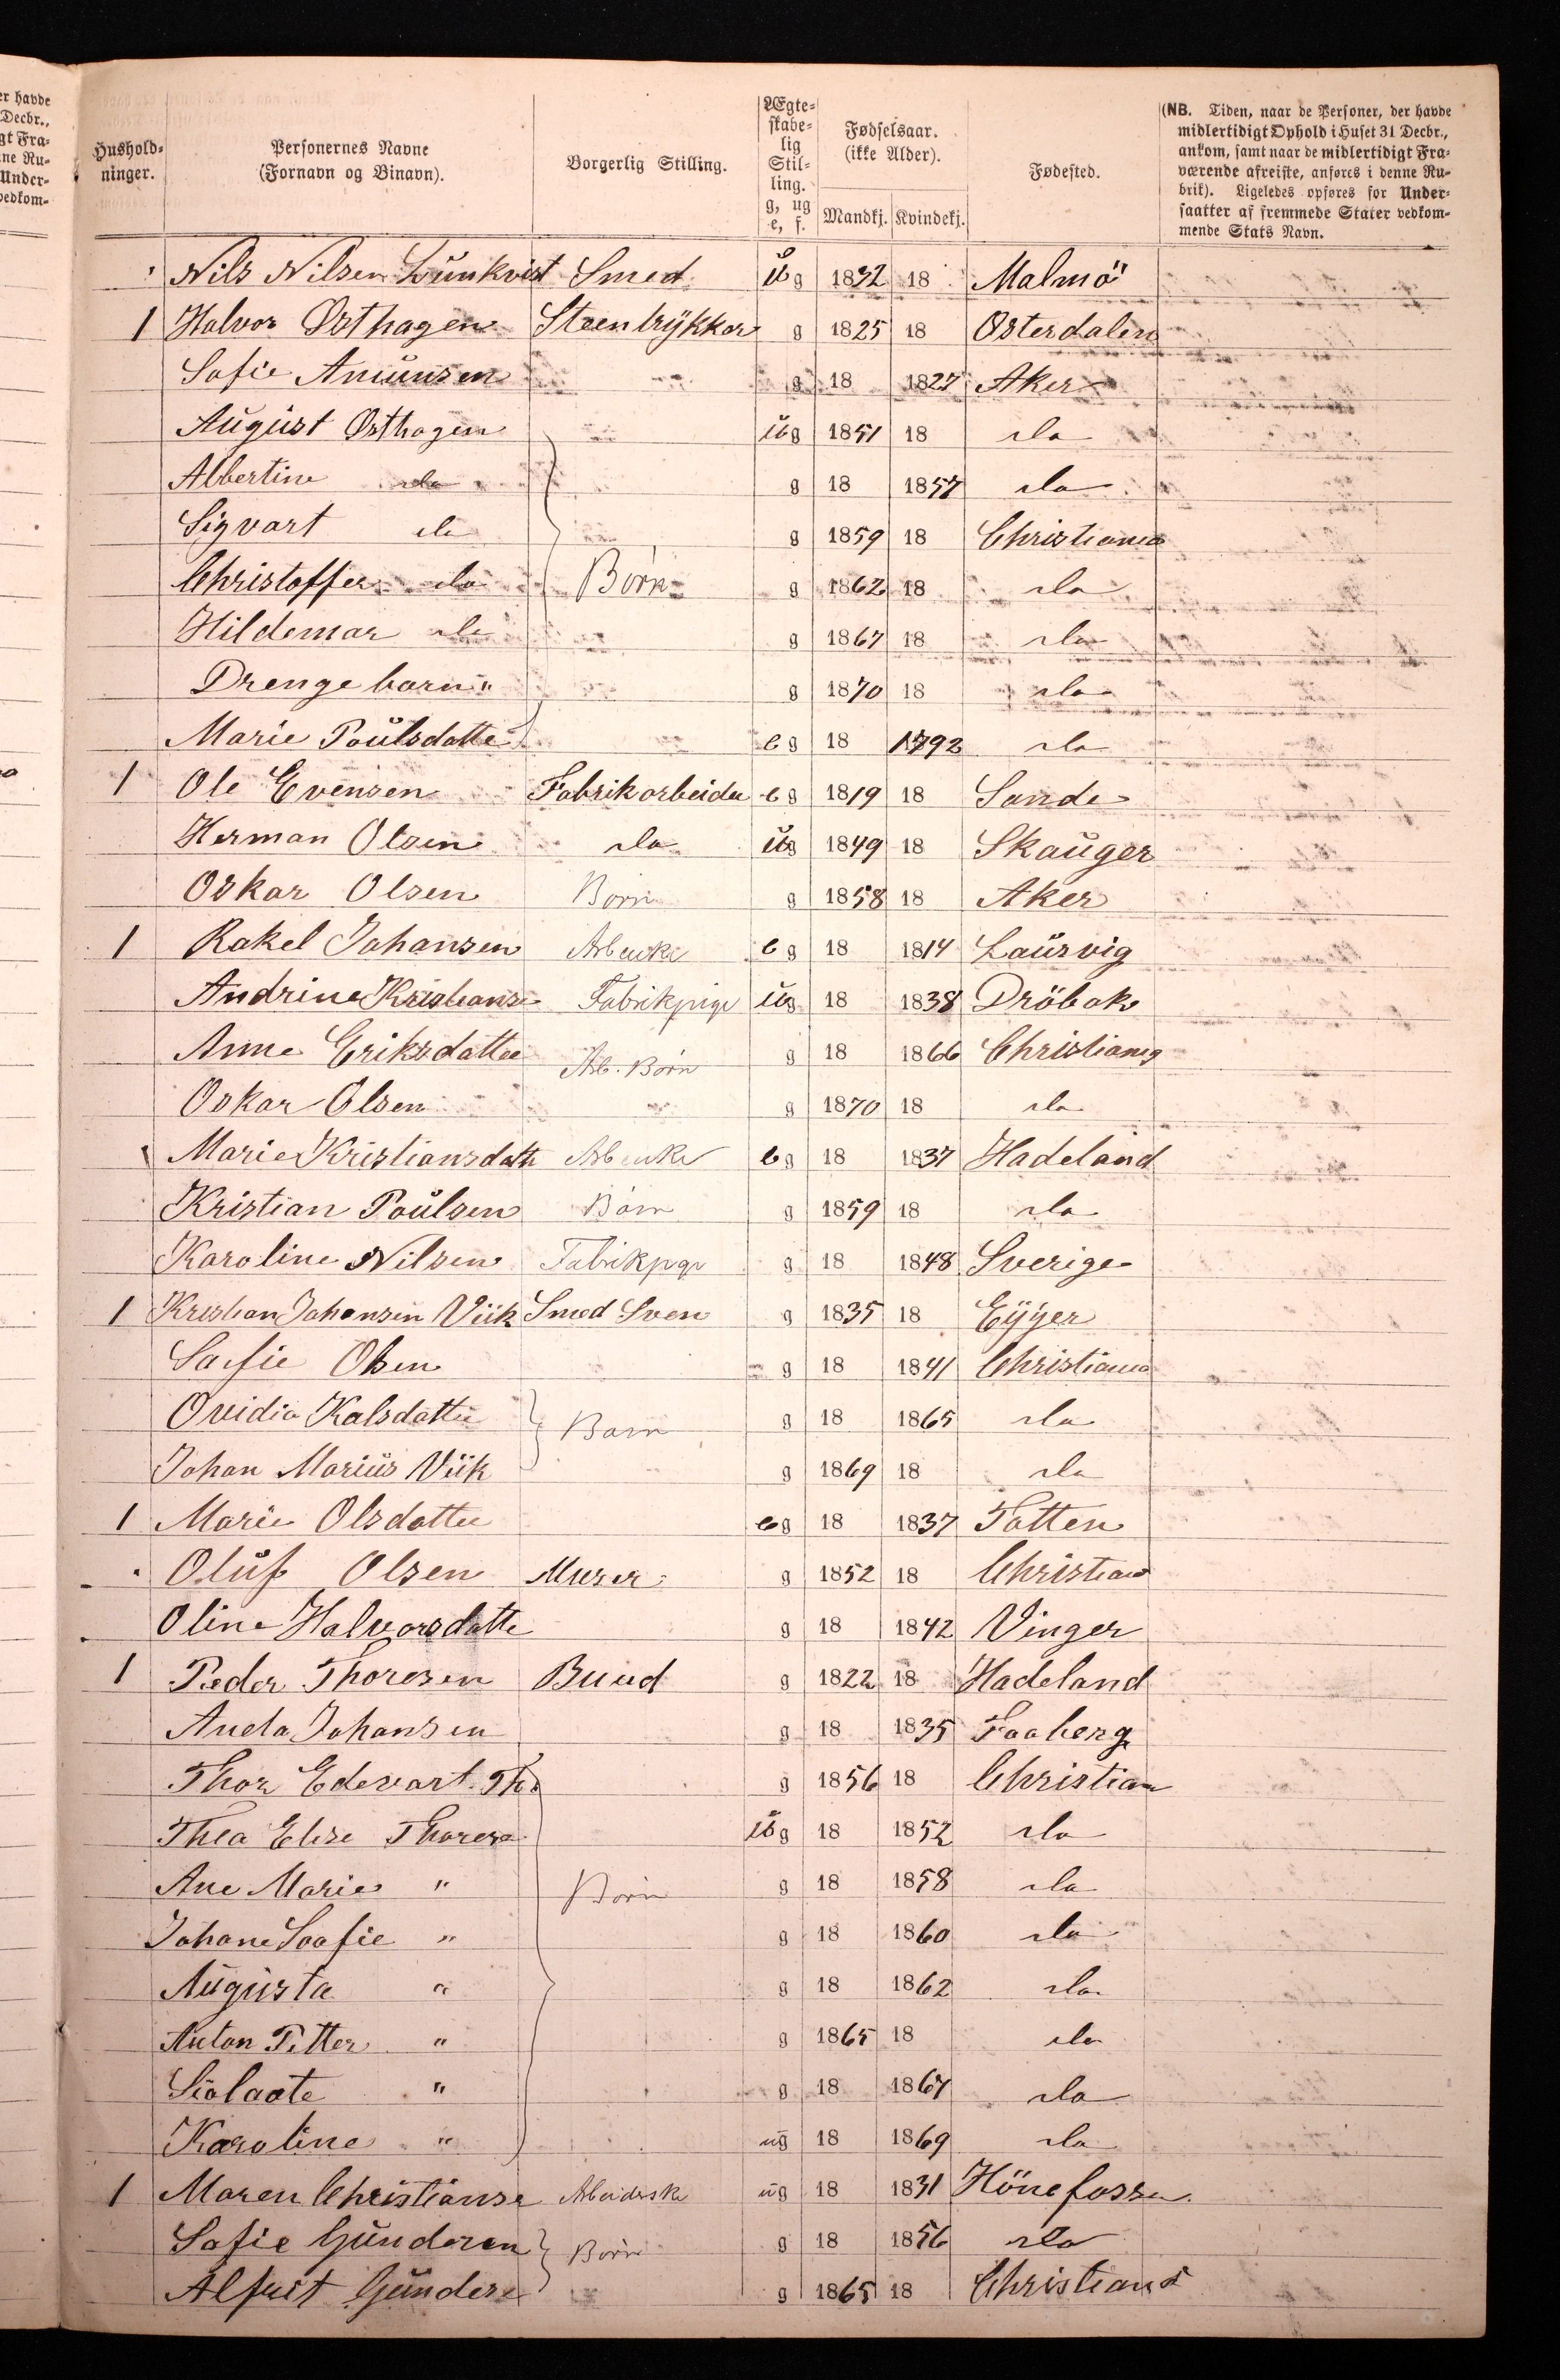 er havde
Decbr.,
gt Fra-
ne Ru-
Under-
vedkom-
Hushold-
ninger.
Personernes Navne
(Fornavn og Binavn).
Borgerlig Stilling.
Ægte-
skabe-
lig
Stil-
ling.
g, ug
e, f.
Fødselsaar.
(ikke Alder).
Mandkj. Kvindekj.
Fødested.
(NB. Tiden, naar de Personer, der havde
midlertidigt Ophold i Huset 31 Decbr.,
ankom, samt naar de midlertidigt Fra-
værende afreiste, anføres i denne Ru-
brik). Ligeledes opføres for Under-
saatter af fremmede Stater vedkom-
mende Stats Navn.
Nils Nilsen Lŭnkvist Smed ŭg 1832 18 Malmö
1 Halvor Østhagen Steentrykker g 1825 18 Osterdalen
Sofie Amŭnsen g 18 1827 Aker
Aŭgŭst Østhagen ŭg 1851 18 do
Albertine do g 18 1857 do
Sigvart do g 1859 18 Christiania
Christoffer do Børn g 1862 18 do
Hildemar do g 1867 18 do
Drengebarn " g 1870 18 do
Marie Poŭlsdatte eg 18 1792 do
1 Ole Evensen Fabrikarbeider eg 1819 18 Sande
Herman Olsen do ŭg 1849 18 Skaŭger
Oskar Olsen Børn g 1858 18 Aker
1 Rakel Johansen Arbeuke eg 18 1814 Laŭrvig
Andrine Kristianse Fabrikpige ŭg 18 1838 Dröbak
Anne Eriksdatter Arb. Børn g 18 1866 Christiania
Oskar Olsen g 1870 18 do
Marie Kristiansdatte Arbeuke eg 18 1837 Hadeland
Kristian Poŭlsen Børn g 1859 18 do
Karoline Nilsen Fabrikpge g 18 1848 Sverige
1 Kristian Johansen Viik Smed Sven g 1835 18 Eyger
Sofie Olsen g 18 1841 Christiania
Ovidia Kalsdatter Barn g 18 1865 do
Johan Mariŭs Viik g 1869 18 do
1 Marie Olsdatter eg 18 1837 Totten
Olŭf Olsen Murer g 1852 18 Christiania
Oline Halvorsdatte g 18 1842 Vinger
1 Peder Thoresen Buud g 1822 18 Hadeland
Aneta Johansen g 18 1835 Faaberg
Thor Edevart Th. g 1856 18 Christian
Thea Elise Thorese ŭg 18 1852 do
Ane Marie " Børn g 18 1858 do
Johane Soofie " g 18 1860 do
Aŭgŭsta " g 18 1862 do
Anton Petter " g 1865 18 do
Siolaate " g 18 1867 do
Karoline " ug 18 1869 do
1 Maren Christianse Arbeiderske ug 18 1831 Hönefossen
Sofie Gŭndersen Børn g 18 1856 do
Alfert Gŭnderse g 1865 18 Christiania